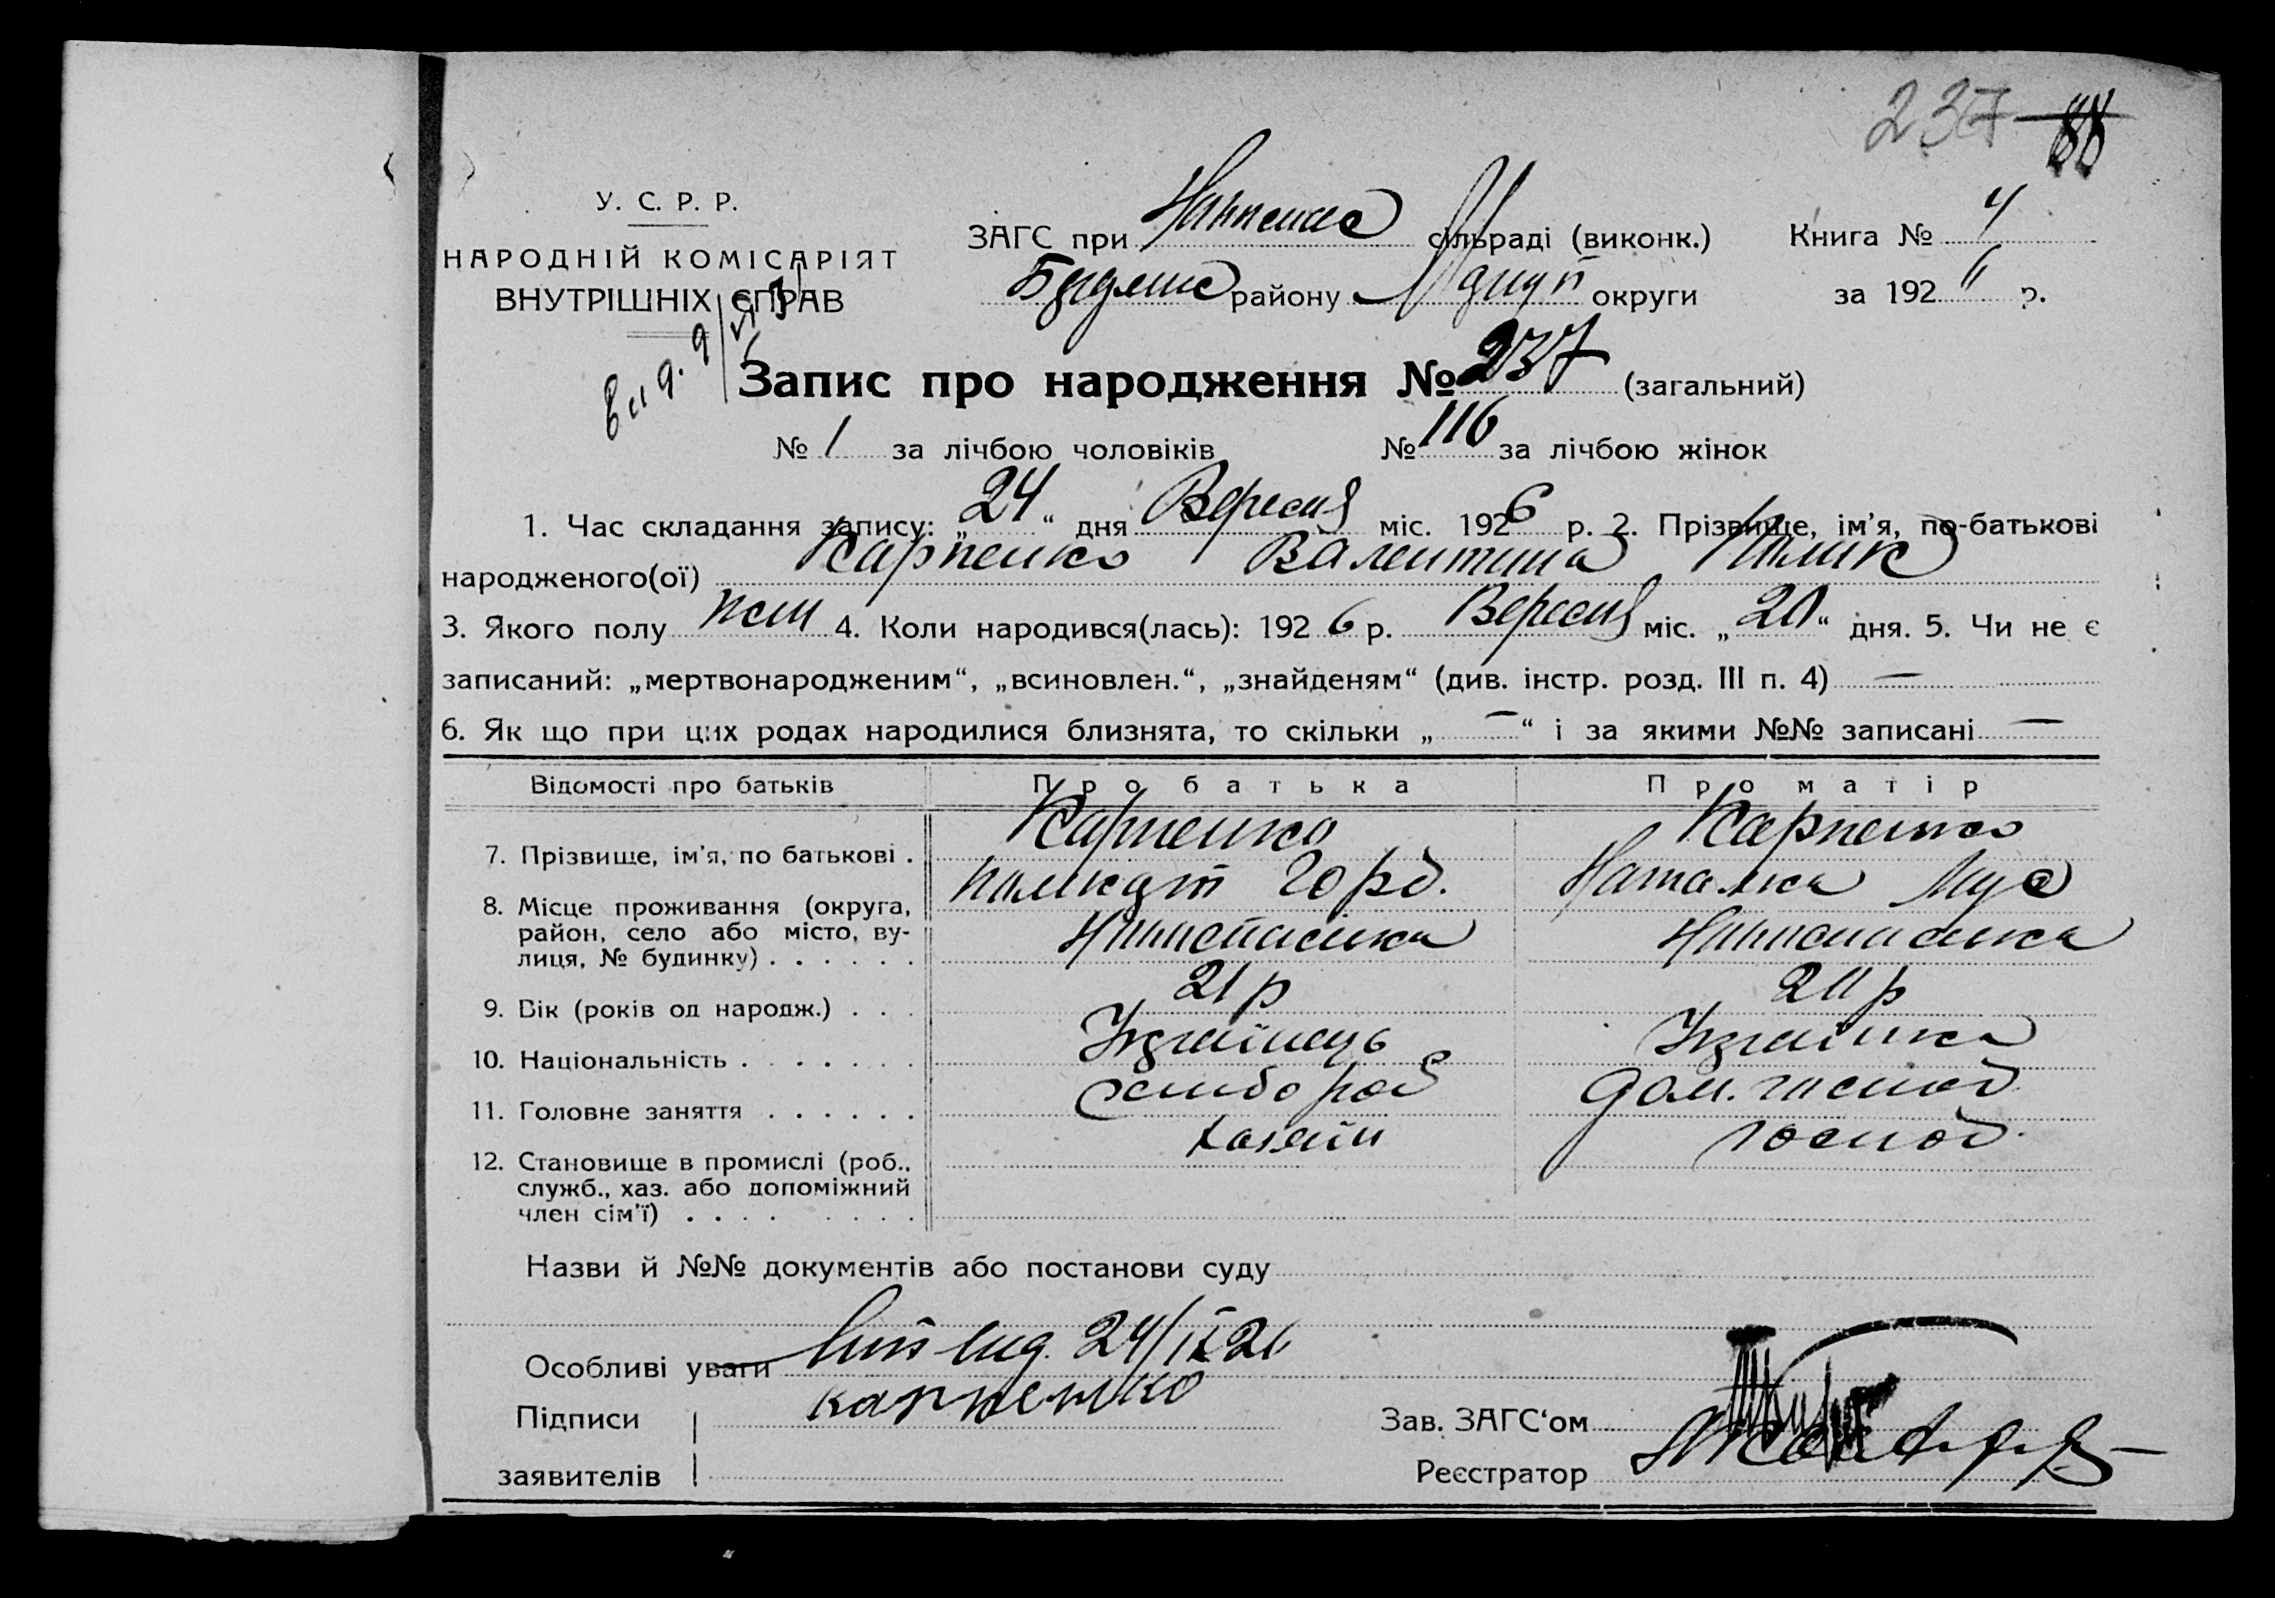 237 88
У. С. Р. Р.
НАРОДНІЙ КОМІСАРІЯТ
ВНУТРІШНІХ СПРАВ
ЗАГС при сільраді (виконк.) Книга № 4
району округи за 1926 р.
Запис про народження № 237 (загальний)
№ 1 за лічбою чоловіків № 116 за лічбою жінок
1. Час складання запису: „24“ дня Вересня міс. 1926 р. 2. Прізвище, ім'я, по-батькові
народженого(ої) Карпенко Валентина
3. Якого полу жен 4. Коли народився(лась): 1926 р. Вересня міс. „20“ дня. 5. Чи не є
записаний: „мертвонародженим“, „всиновлен.“, „знайденям“ (див. інстр. розд. III п. 4) —
6. Як що при цих родах народилися близнята, то скільки „—“ і за якими №№ записані —
Відомості про батьків Про батька Про матір
7. Прізвище, ім'я, по батькові . Карпенко Карпенко
Горд. Наталка
8. Місце проживання (округа,
район, село або місто, ву-
лиця, № будинку) . . . . . .
9. Вік (років од народж.) . . . 21 р 20 р
10. Національність . . . . . . . Українець Українка
11. Головне заняття . . . . . . хлібороб дом.
12. Становище в промислі (роб., хазяїн господ.
служб., хаз. або допоміжний
член сім'ї) . . . . . . . .
Назви й №№ документів або постанови суду
Особливі уваги 24/IX 26
Підписи Карпенко Зав. ЗАГС‘ом
заявителів Реєстратор